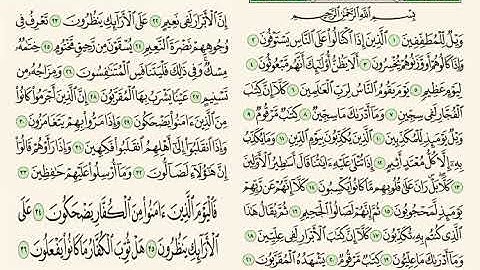 بِسْمِ ٱللَّهِ ٱلرَّحْمَٰنِ ٱلرَّحِيمِ
وَيْلٌ لِّلْمُطَفِّفِينَ ١ ٱلَّذِينَ إِذَا ٱكْتَالُوا۟ عَلَى ٱلنَّاسِ يَسْتَوْفُونَ ٢
وَإِذَا كَالُوهُمْ أَو وَّزَنُوهُمْ يُخْسِرُونَ ٣ أَلَا يَظُنُّ أُو۟لَٰٓئِكَ أَنَّهُم مَّبْعُوثُونَ ٤
لِيَوْمٍ عَظِيمٍ ٥ يَوْمَ يَقُومُ ٱلنَّاسُ لِرَبِّ ٱلْعَٰلَمِينَ ٦ كَلَّآ إِنَّ كِتَٰبَ
ٱلْفُجَّارِ لَفِى سِجِّينٍ ٧ وَمَآ أَدْرَىٰكَ مَا سِجِّينٌ ٨ كِتَٰبٌ مَّرْقُومٌ ٩
وَيْلٌ يَوْمَئِذٍ لِّلْمُكَذِّبِينَ ١٠ ٱلَّذِينَ يُكَذِّبُونَ بِيَوْمِ ٱلدِّينِ ١١ وَمَا يُكَذِّبُ
بِهِۦٓ إِلَّا كُلُّ مُعْتَدٍ أَثِيمٍ ١٢ إِذَا تُتْلَىٰ عَلَيْهِ ءَايَٰتُنَا قَالَ أَسَٰطِيرُ ٱلْأَوَّلِينَ
١٣ كَلَّا بَلْ رَانَ عَلَىٰ قُلُوبِهِم مَّا كَانُوا۟ يَكْسِبُونَ ١٤ كَلَّآ إِنَّهُمْ عَن رَّبِّهِمْ
يَوْمَئِذٍ لَّمَحْجُوبُونَ ١٥ ثُمَّ إِنَّهُمْ لَصَالُوا۟ ٱلْجَحِيمِ ١٦ ثُمَّ يُقَالُ هَٰذَا
ٱلَّذِى كُنتُم بِهِۦ تُكَذِّبُونَ ١٧ كَلَّآ إِنَّ كِتَٰبَ ٱلْأَبْرَارِ لَفِى عِلِّيِّينَ ١٨
وَمَآ أَدْرَىٰكَ مَا عِلِّيُّونَ ١٩ كِتَٰبٌ مَّرْقُومٌ ٢٠ يَشْهَدُهُ ٱلْمُقَرَّبُونَ ٢١
إِنَّ ٱلْأَبْرَارَ لَفِى نَعِيمٍ ٢٢ عَلَى ٱلْأَرَآئِكِ يَنظُرُونَ ٢٣ تَعْرِفُ فِى
وُجُوهِهِمْ نَضْرَةَ ٱلنَّعِيمِ ٢٤ يُسْقَوْنَ مِن رَّحِيقٍ مَّخْتُومٍ ٢٥ خِتَٰمُهُۥ
مِسْكٌ وَفِى ذَٰلِكَ فَلْيَتَنَافَسِ ٱلْمُتَنَٰفِسُونَ ٢٦ وَمِزَاجُهُۥ مِن
تَسْنِيمٍ ٢٧ عَيْنًا يَشْرَبُ بِهَا ٱلْمُقَرَّبُونَ ٢٨ إِنَّ ٱلَّذِينَ أَجْرَمُوا۟ كَانُوا۟
مِنَ ٱلَّذِينَ ءَامَنُوا۟ يَضْحَكُونَ ٢٩ وَإِذَا مَرُّوا۟ بِهِمْ يَتَغَامَزُونَ ٣٠
وَإِذَا ٱنقَلَبُوٓا۟ إِلَىٰٓ أَهْلِهِمُ ٱنقَلَبُوا۟ فَكِهِينَ ٣١ وَإِذَا رَأَوْهُمْ قَالُوٓا۟
إِنَّ هَٰٓؤُلَآءِ لَضَآلُّونَ ٣٢ وَمَآ أُرْسِلُوا۟ عَلَيْهِمْ حَٰفِظِينَ ٣٣
فَٱلْيَوْمَ ٱلَّذِينَ ءَامَنُوا۟ مِنَ ٱلْكُفَّارِ يَضْحَكُونَ ٣٤ عَلَى
ٱلْأَرَآئِكِ يَنظُرُونَ ٣٥ هَلْ ثُوِّبَ ٱلْكُفَّارُ مَا كَانُوا۟ يَفْعَلُونَ ٣٦